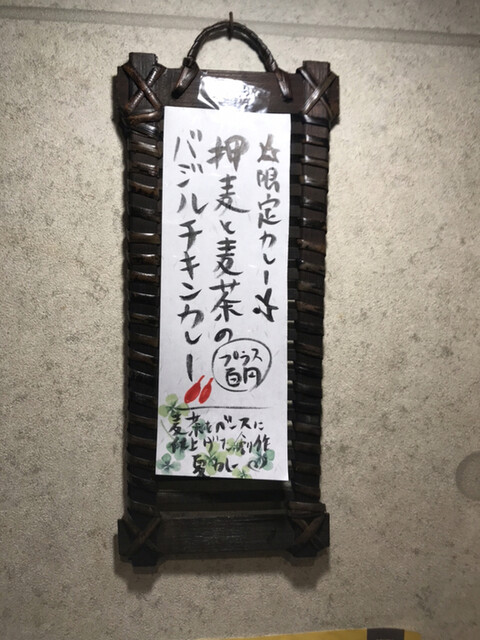 ☆限定カレー☆
押麦と麦茶の
バジルチキンカレー
プラス
百円
麦茶をベースに
仕上げた創作
夏カレー